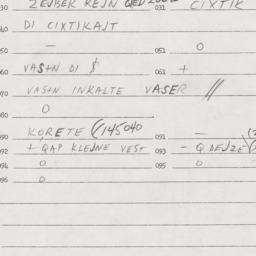 030 ZEJBER REJN QED 031 CIXTIK
040 DI CIXTIKAJT
050 — 051 O
060 VASTN DI $ 061 +
070 VASTN INKALTE VASER //
O
090 KORETE (145040 091 —
092 + QAP KLEJNE VEST 093 - Q DEJZE
094 O 095 O
096 O